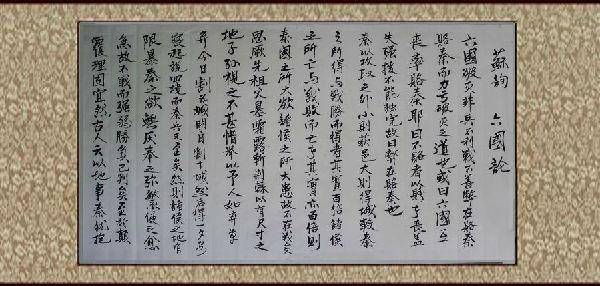 蘇洵 六國論
六國破灭非兵不利戰不善弊在賂秦
賂秦而力亏破灭之道也或曰六國互
喪率賂秦耶曰不賂者以賂者喪盖
失强援不能独完故曰弊在賂秦也
秦以攻取之外小則获邑大則得城較秦
之所得与戰勝而得者其實百倍諸侯
之所亡与戰敗而亡者其實亦百倍則
秦國之所大欲諸侯之所大患故不在戰矣
思厥先祖父暴霜露斬荆棘以有尺寸之
地子孫視之不甚惜举以予人如弃草
芥今日割五城明日割十城然后得一夕安
寢起視四境而秦兵又至矣然則諸侯之地有
限暴秦之欲無厌奉之弥繁侵之愈
急故不戰而强弱勝負已判矣至於颠
覆理固宜然古人云以地事秦犹抱